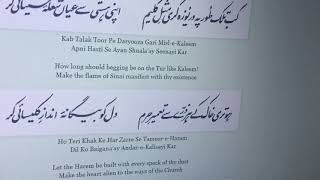 کب تلک طور پہ دریوزہ گری مثل کلیم
اپنی ہستی سے عیاں شعلۂ سینائی کر
Kab Talak Toor Pe Daryouza Gari Misl-e-Kaleem
Apni Hasti Se Ayan Shoala'ay Seenayi Kar
How long should begging be on the Tur like Kalim!
Make the flame of Sinai manifest with thy existence
ہو تری خاک کے ہر ذرے سے تعمیر حرم
دل کو بیگانۂ انداز کلیسائی کر
Ho Teri Khak Ke Har Zarre Se Tameer-e-Haram
Dil Ko Baigana'ay Andaz-e-Kalisayi Kar
Let the Harem be built with every speck of thy dust
Make the heart alien to the ways of the Church